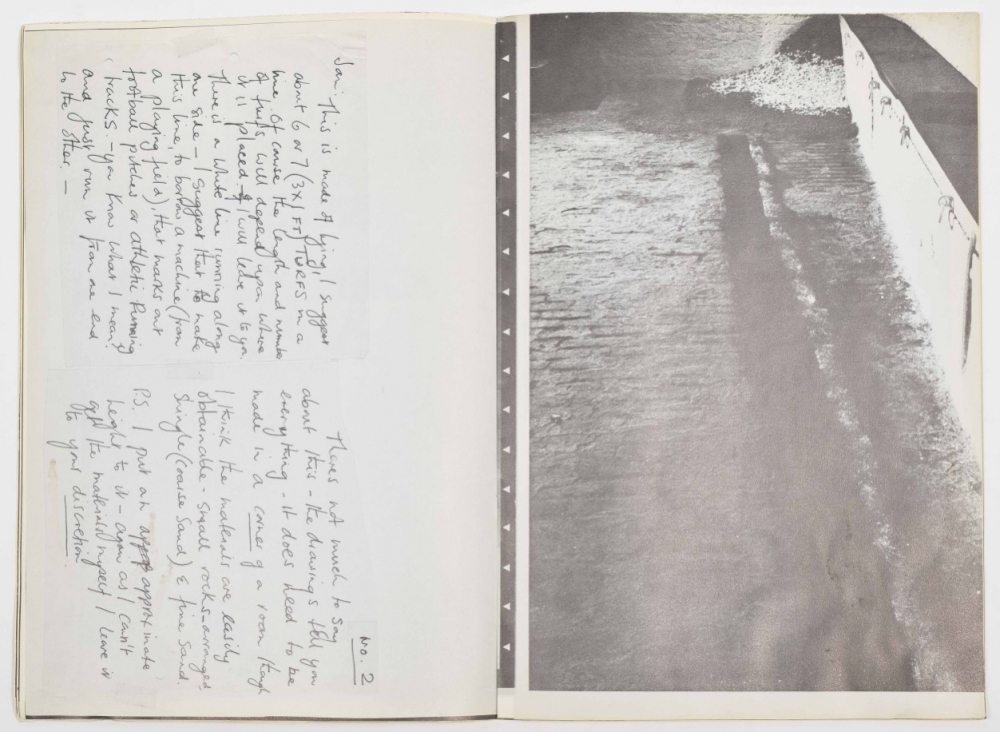 Jan: This is made of lying, I suggest
about 6 or 7 (3x1 FT) TURFS in a
line. Of course the length and number
of turfs will depend upon where
it is placed – I will leave it to you
There is a white line running along
one side – I suggest that to make
this line, to borrow a machine (from
a playing field), that marks out
football pitches or athletic Running
tracks – you know what I mean!
and just run it from one end
to the other. –
No. 2
Theres not much to say
about this – the drawings tell you
everything – it does need to be
made in a corner of a room though
I think the materials are easily
obtainable – small rocks – arranged –
Shingle (coarse sand) & fine sand.
P.S. I put an approximate
height to it – again as I can't
get the materials myself I leave it
to your discretion!